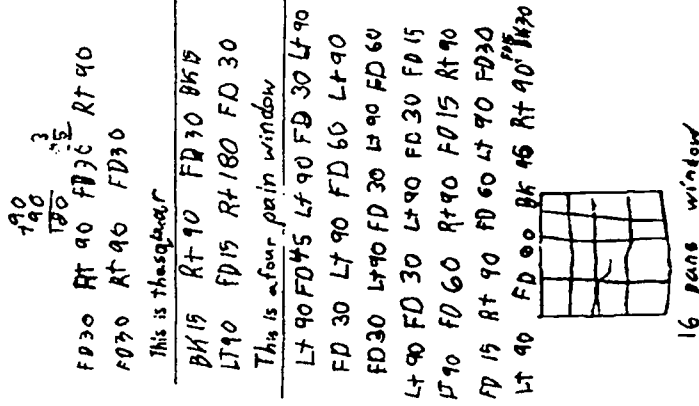 +90
90
180
3
FD30 RT 90 FD30 Rt 90
FD30 Rt 90 FD30
This is thasquear
BK15 Rt 90 FD30 BK15
LT90 FD15 Rt180 FD 30
This is a four pain window
Lt 90 FD45 Lt 90 FD 30 Lt 90
FD 30 Lt 90 FD 60 Lt 90
FD30 Lt90 FD 30 Lt 90 FD 60
Lt 90 FD 30 Lt 90 FD 30 FD 15
LT 90 FD 60 Rt 90 FD 15 Rt 90
FD 15 Rt 90 FD 60 Lt 90 FD30
Lt 90 FD 60 BK 45 Rt 90 FD15 BK30
16 pane window